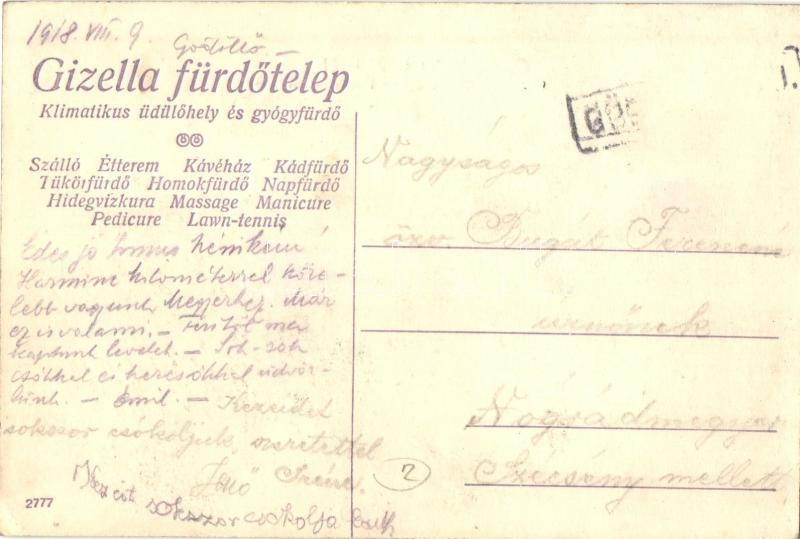 1918. VIII. 9
Gödöllő —
Gizella fürdőtelep
Klimatikus üdülőhely és gyógyfürdő
Szálló Étterem Kávéház Kádfürdő
Tükörfürdő Homokfürdő Napfürdő
Hidegvizkura Massage Manicure
Pedicure Lawn-tennis
Édes jó
Harminc kilométerrel köze-
lebb vagyunk Megyerhez. Már
ez is valami. — ma
kaptunk levelet. — Sok-sok
csókkal és kézcsókkal üdvöz-
lünk. — Emil. — Kezeidet
sokszor csókoljuk szeretettel
Jenő
Kezeit sokszor csokolja
2777
Nagyságos
özv. Bugát Ferencné
urnőnek
Nógrádmegyer
Szécsény mellett
2